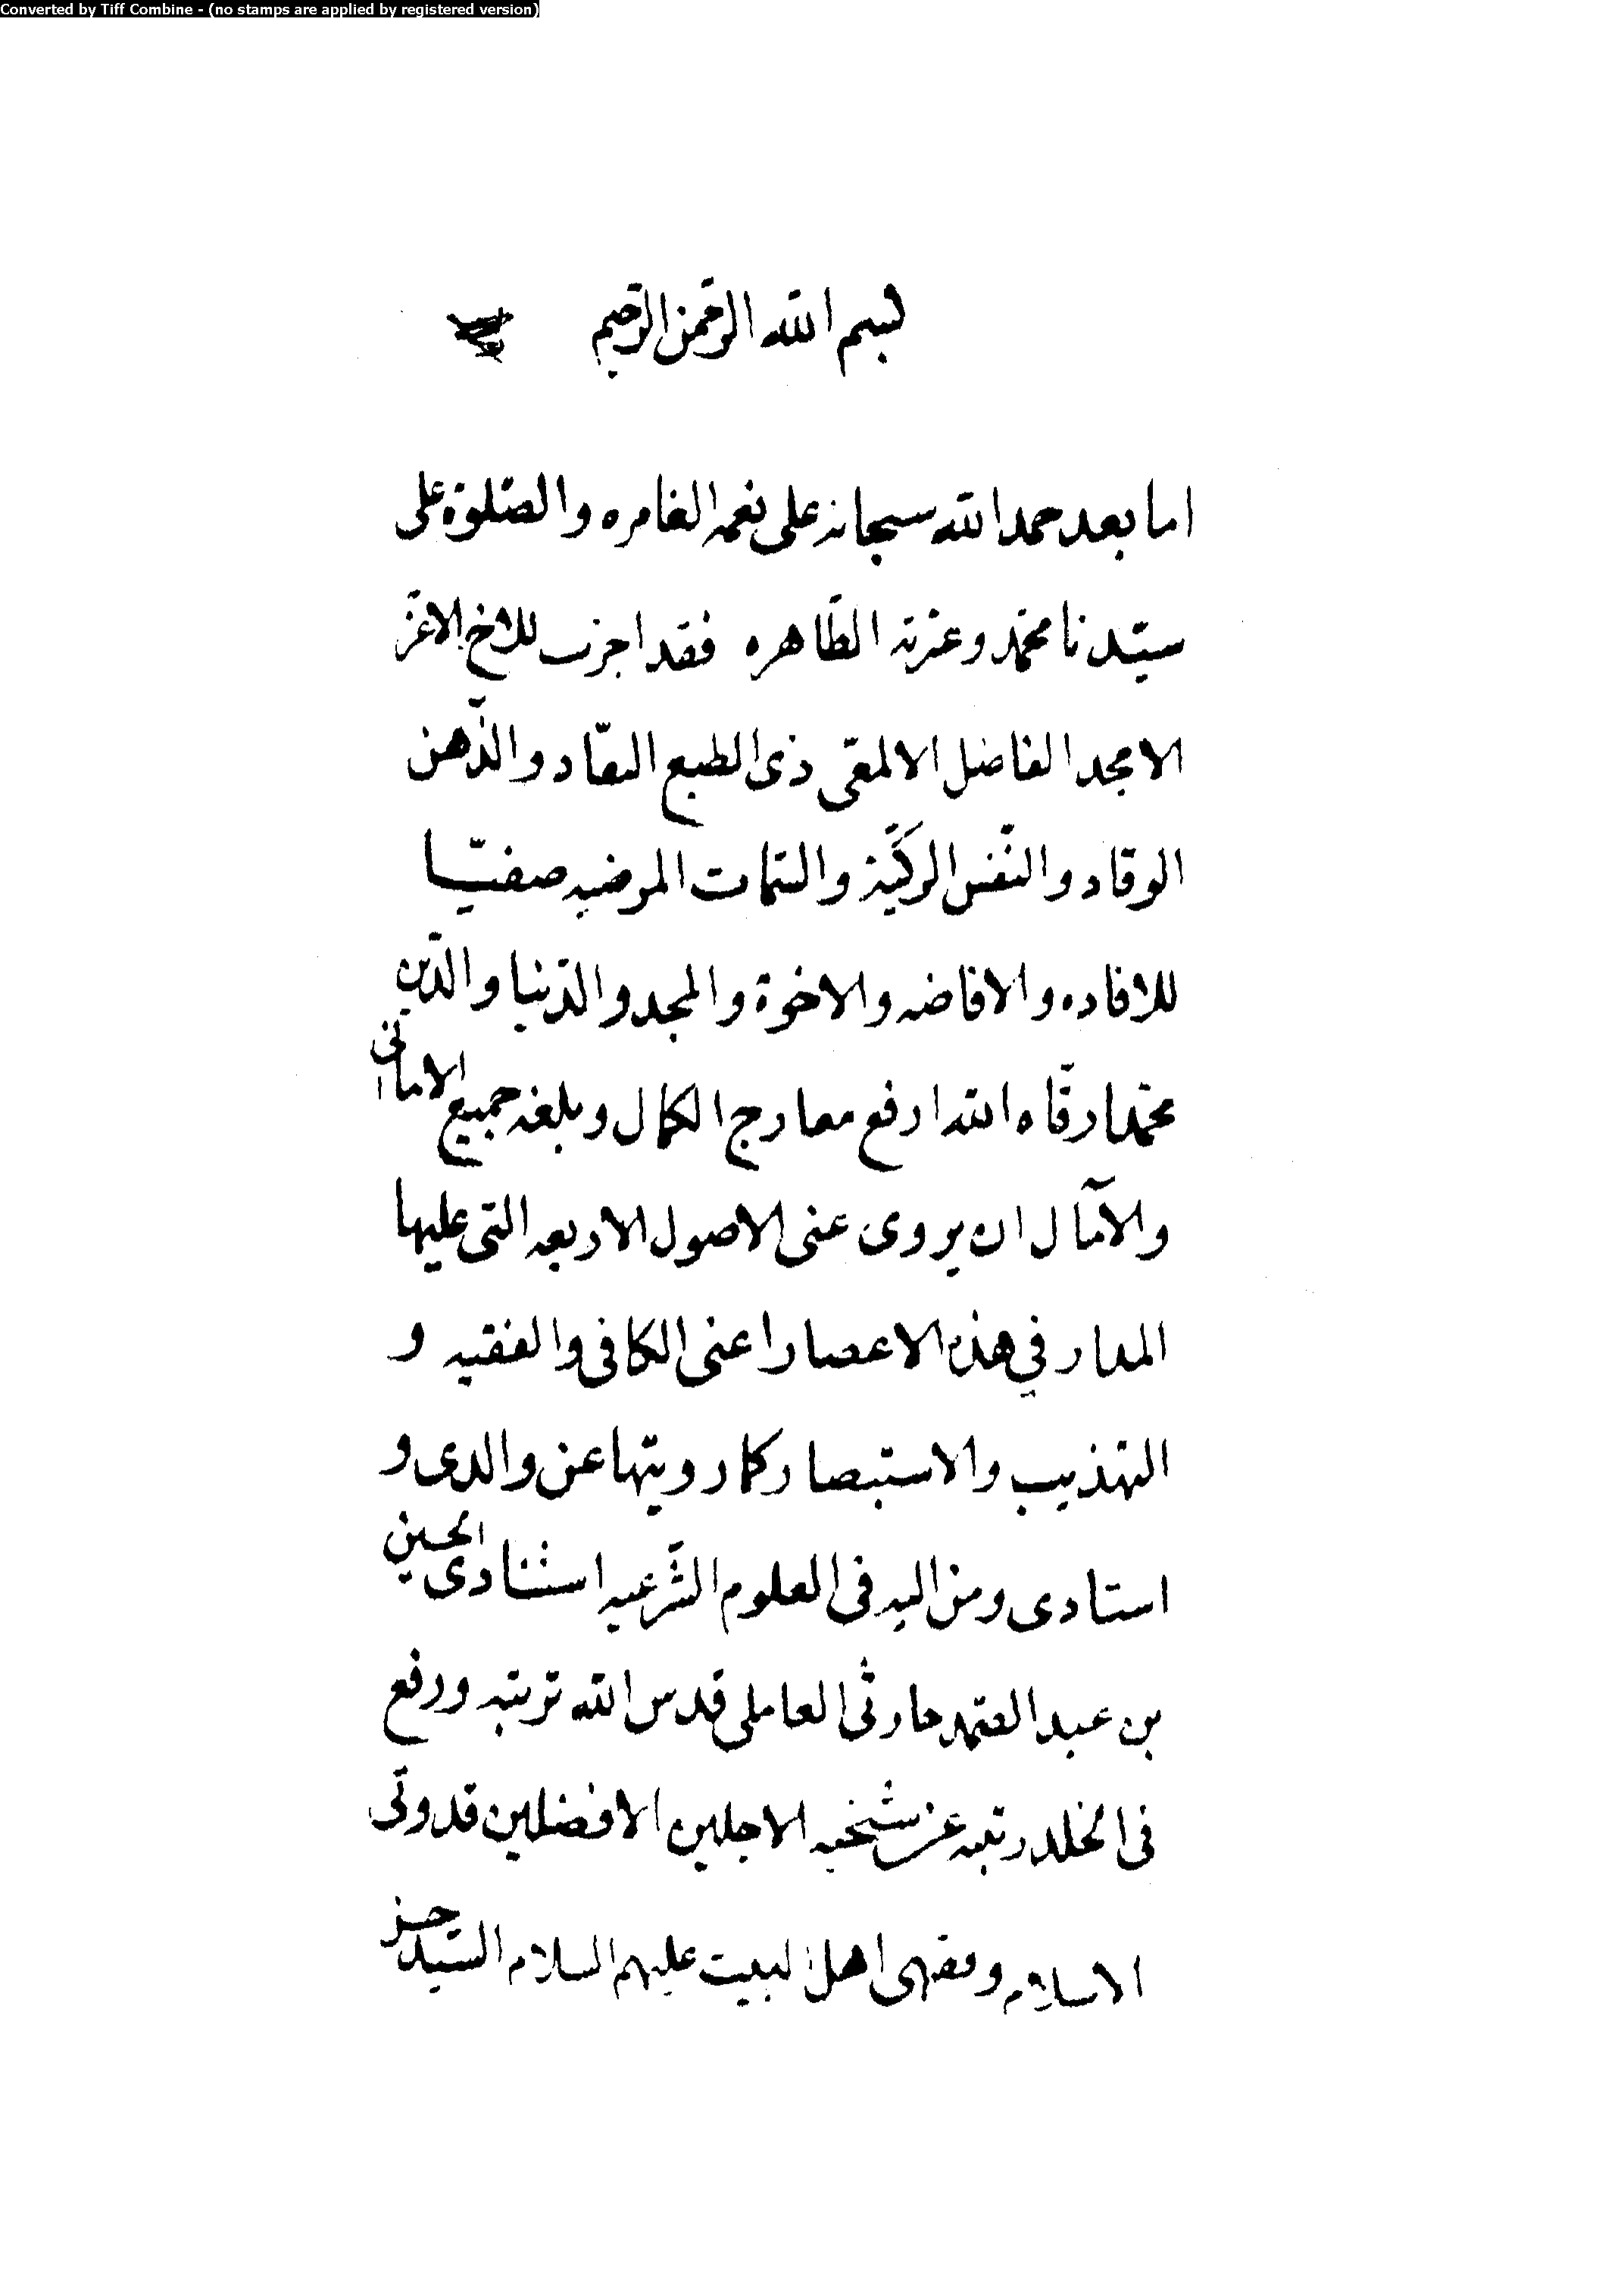 Converted by Tiff Combine - (no stamps are applied by registered version)
بسم الله الرحمن الرحيم
اما بعد حمد الله سبحانه على نعمه الغامره والصّلوة على
سيّدنا محمّد وعترته الطّاهره فقد اجزت للاخ الاعزّ
الامجد الفاضل الالمعّى ذى الطبع النقّاد والذّهن
الوقاد والنّفس الزكيّة والسّمات المرضيه صفيّا
للافاده والافاضه والاخوة والمجد والدّنيا والدّين
محمّدا رقّاه الله ارفع معارج الكمال وبلغه جميع الامانى
والآمال ان يروى عنى الاصول الاربعه التى عليها
المدار في هذه الاعصار اعنى الكافى والفقيه و
التهذيب والاستبصار كما رويتها عن والدى و
استادى ومن اليه فى العلوم الشّرعيه استنادى الحسين
بن عبد الصّمد حارثى العاملى قدس الله تربته ورفع
فى الخلد رتبته عن شيخيه الاجلين الافضلين قدوتى
الاسلام وفقهى اهل البيت عليهم السلام السّيد حسن